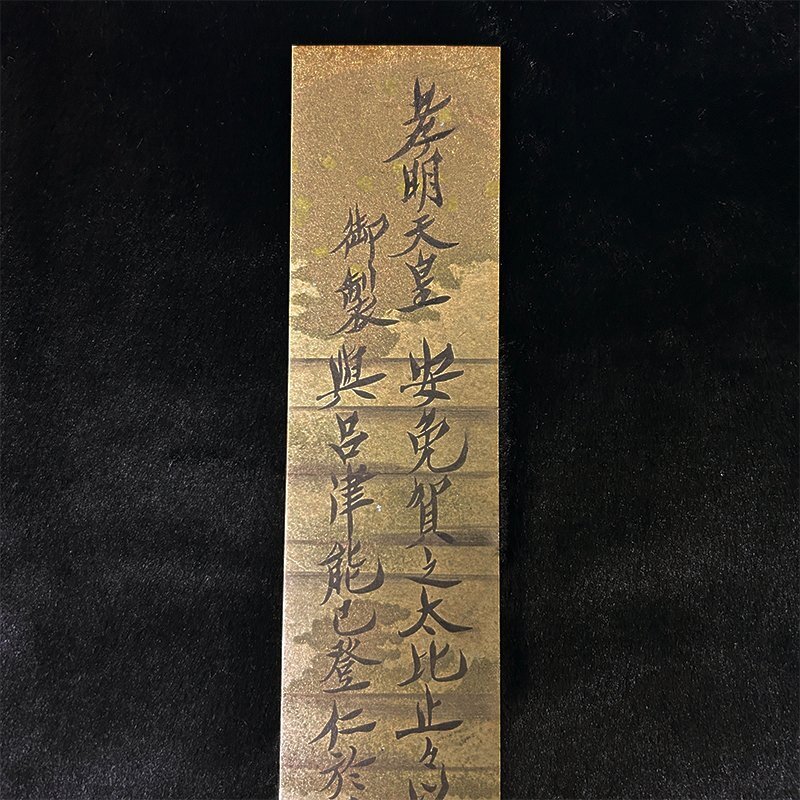 孝明天皇
御製
安免賀之太比止々
與呂津能己登仁於